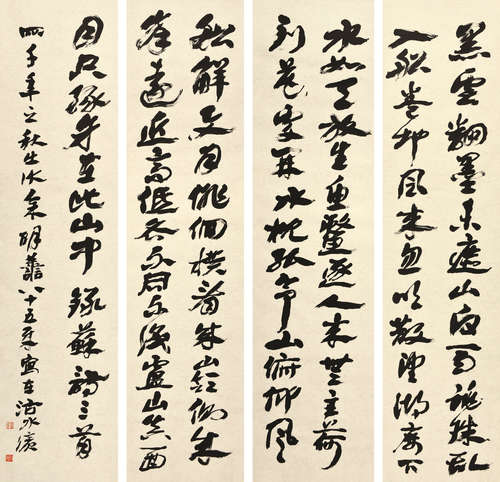 黑雲翻墨未遮山白雨跳珠亂
入船卷地風來忽吹散望湖樓下
水如天放生魚鱉逐人來無主荷
花到處開水枕能令山俯仰風
船解與月徘徊橫看成嶺側成
峰遠近高低各不同不識廬山真面
目只緣身在此山中 錄蘇詩三首
年之秋 八十五叟